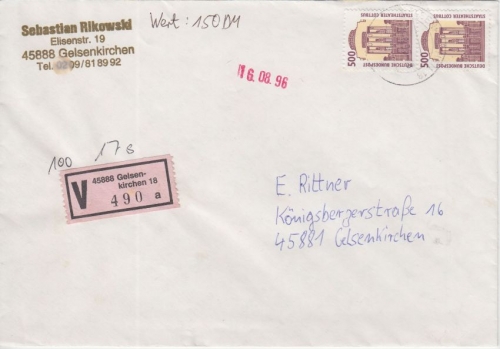 Sebastian Rikowski
Elisenstr. 19
45888 Gelsenkirchen
Tel. 0209/818992
Wert: 150 DM
500
DEUTSCHE BUNDESPOST
STAATSTHEATER COTTBUS
500
DEUTSCHE BUNDESPOST
STAATSTHEATER COTTBUS
6. 08. 96
100
17 g
V
45888 Gelsen-
kirchen 16
490 a
E. Rittner
Königsbergerstraße 16
45881 Gelsenkirchen